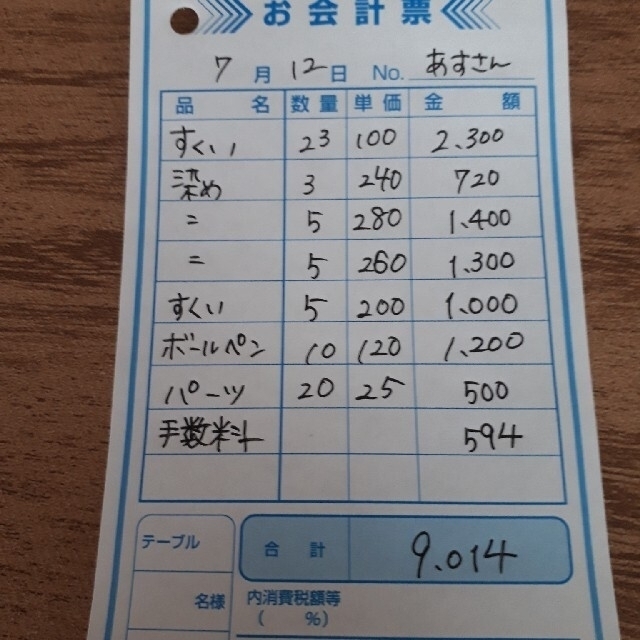 お会計票
7月12日 No. あすさん
品名 数量 単価 金額
すくい 23 100 2.300
染め 3 240 720
〃 5 280 1.400
〃 5 260 1.300
すくい 5 200 1.000
ボールペン 10 120 1.200
パーツ 20 25 500
手数料 594
テーブル
合計 9.014
名様
内消費税額等
( %)